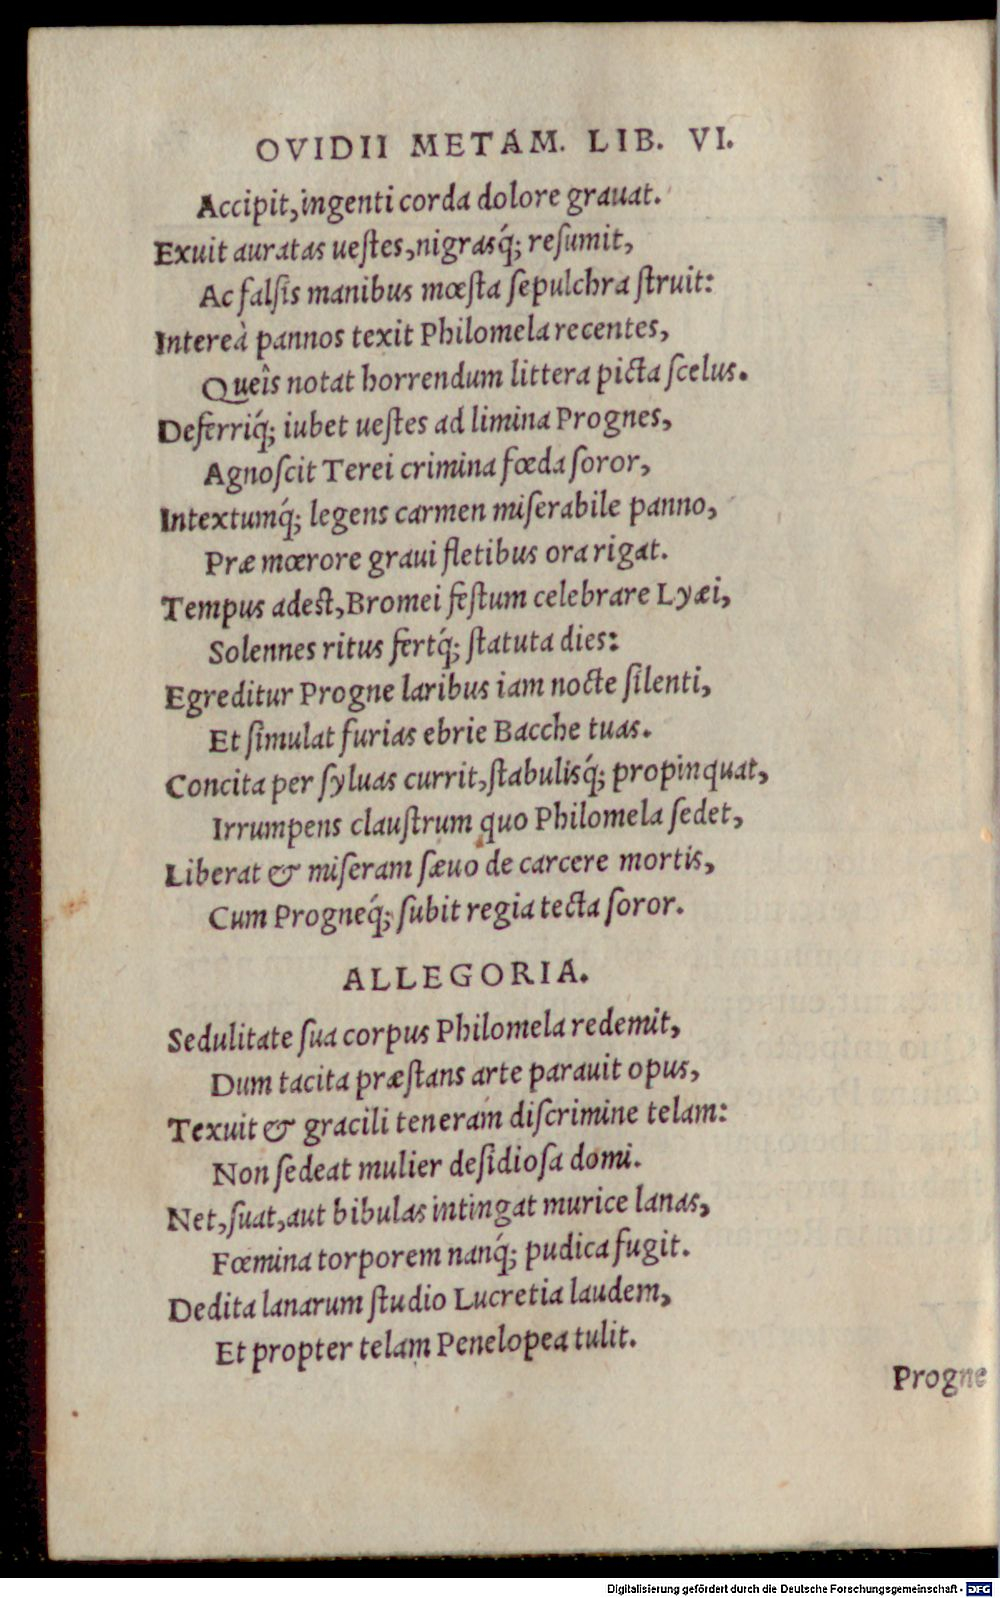 OVIDII METAM. LIB. VI.
Accipit, ingenti corda dolore grauat.
Exuit auratas ueſtes, nigrasq́; reſumit,
Ac falſis manibus mœſta ſepulchra ſtruit:
Intereà pannos texit Philomela recentes,
Queîs notat horrendum littera picta ſcelus.
Deferriq́; iubet ueſtes ad limina Prognes,
Agnoſcit Terei crimina fœda ſoror,
Intextumq́; legens carmen miſerabile panno,
Præ mœrore graui fletibus ora rigat.
Tempus adeſt, Bromei feſtum celebrare Lyæi,
Solennes ritus fertq́; ſtatuta dies:
Egreditur Progne laribus iam nocte ſilenti,
Et ſimulat furias ebrie Bacche tuas.
Concita per ſyluas currit, ſtabulisq́; propinquat,
Irrumpens clauſtrum quo Philomela ſedet,
Liberat & miſeram ſæuo de carcere mortis,
Cum Progneq́; ſubit regia tecta ſoror.
ALLEGORIA.
Sedulitate ſua corpus Philomela redemit,
Dum tacita præſtans arte parauit opus,
Texuit & gracili teneram diſcrimine telam:
Non ſedeat mulier deſidioſa domi.
Net, ſuat, aut bibulas intingat murice lanas,
Fœmina torporem nanq́; pudica fugit.
Dedita lanarum ſtudio Lucretia laudem,
Et propter telam Penelopea tulit.
Progne
Digitalisierung gefördert durch die Deutsche Forschungsgemeinschaft - DFG